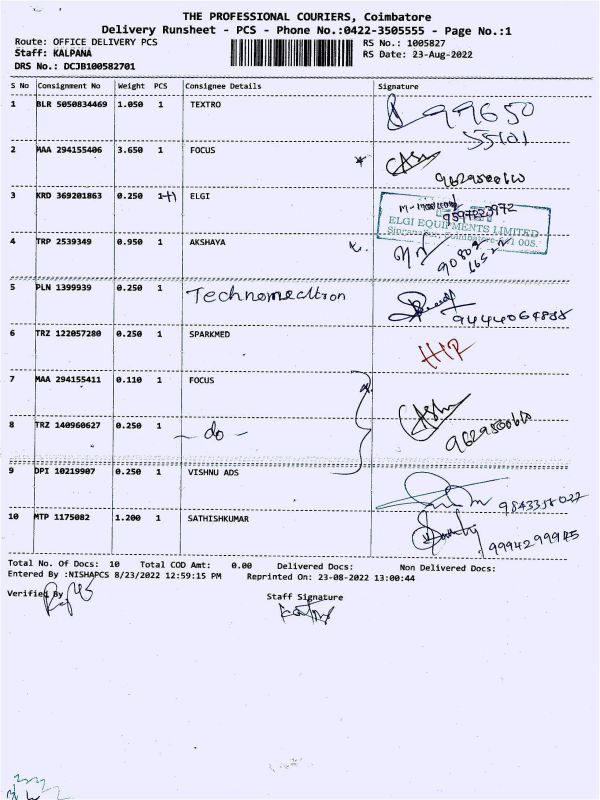 THE PROFESSIONAL COURIERS, Coimbatore
Delivery Runsheet - PCS - Phone No.:0422-3505555 - Page No.:1
Route: OFFICE DELIVERY PCS RS No.: 1005827
Staff: KALPANA RS Date: 23-Aug-2022
DRS No.: DCJB100582701
S No Consignment No Weight PCS Consignee Details Signature
1 BLR 5050834469 1.050 1 TEXTRO 99650
55101
2 MAA 294155406 3.650 1 FOCUS
3 KRD 369201863 0.250 1 ELGI
ELGI EQUIPMENTS LIMITED
4 TRP 2539349 0.950 1 AKSHAYA
5 PLN 1399939 0.250 1
6 TRZ 122057280 0.250 1 SPARKMED
7 MAA 294155411 0.110 1 FOCUS
8 TRZ 140960627 0.250 1 - do -
9 DPI 10219907 0.250 1 VISHNU ADS
10 MTP 1175082 1.200 1 SATHISHKUMAR
Total No. Of Docs: 10 Total COD Amt: 0.00 Delivered Docs: Non Delivered Docs:
Entered By :NISHAPCS 8/23/2022 12:59:15 PM Reprinted On: 23-08-2022 13:00:44
Verified By Staff Signature